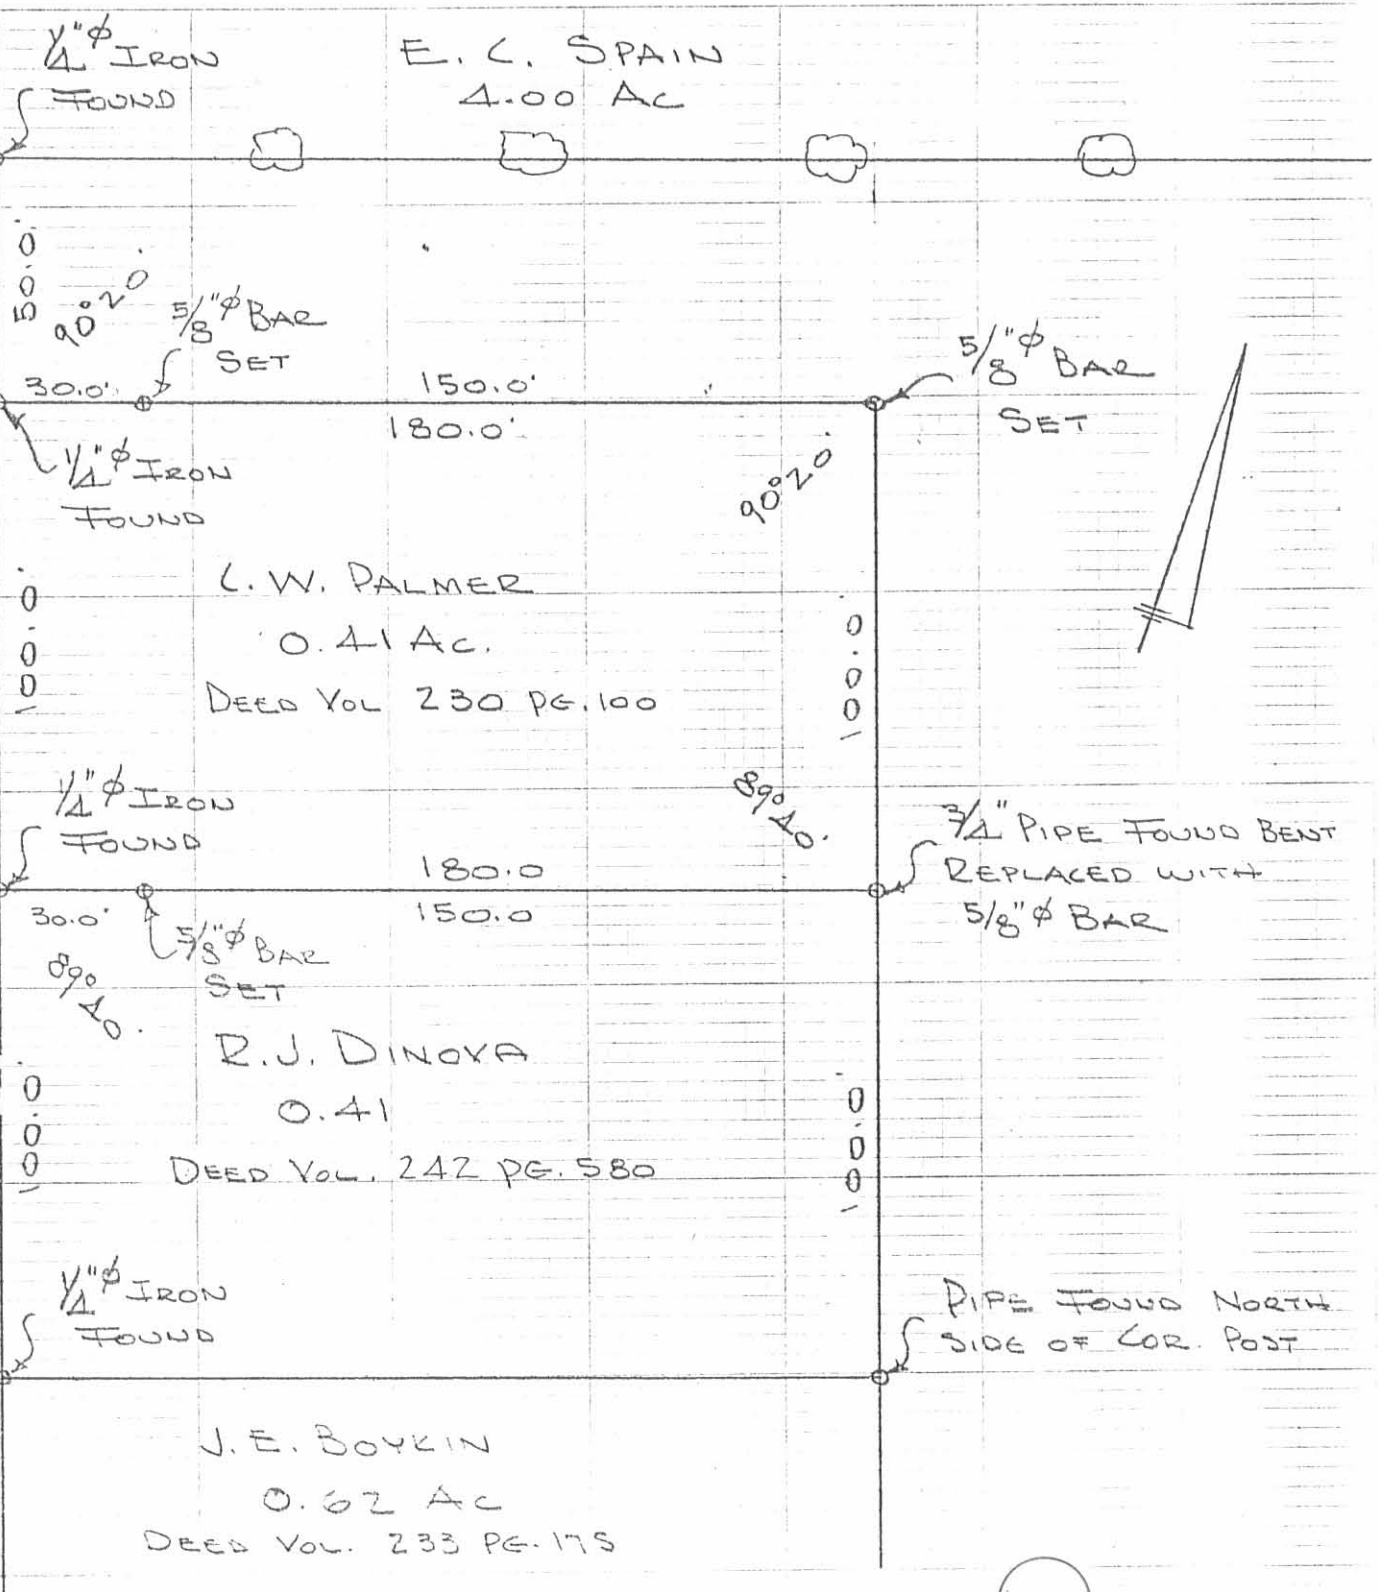 1/4"ϕ IRON
FOUND
E. C. SPAIN
4.00 AC
50.0'
90°20'
5/8"ϕ BAR
SET
30.0'
150.0'
180.0'
5/8"ϕ BAR
SET
1/4"ϕ IRON
FOUND
90°20'
C. W. PALMER
0.41 AC.
DEED VOL 230 PG. 100
100.0'
100.0'
1/4"ϕ IRON
FOUND
89°40'
180.0
150.0
30.0'
3/4" PIPE FOUND BENT
REPLACED WITH
5/8"ϕ BAR
5/8"ϕ BAR
SET
89°40'
R.J. DINOVA
0.41
DEED VOL. 242 PG. 580
100.0'
100.0'
1/4"ϕ IRON
FOUND
PIPE FOUND NORTH
SIDE OF COR. POST
J.E. BOYKIN
0.62 AC
DEED VOL. 233 PG. 175